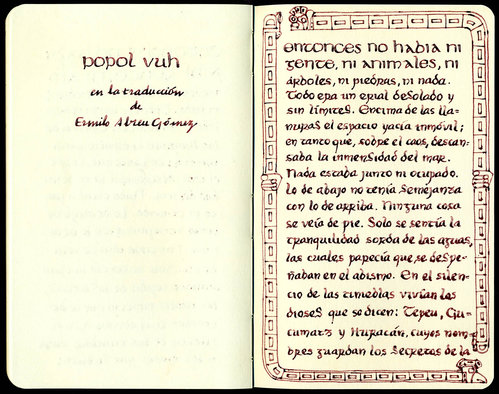 popol vuh
en la traducción
de
Ermilo Abreu Gómez
entonces no había ni
gente, ni animales, ni
árboles, ni piedras, ni nada.
Todo era un erial desolado y
sin límites. Encima de las lla-
nuras el espacio yacía inmóvil;
en tanto que, sobre el caos, descan-
saba la inmensidad del mar.
Nada estaba junto ni ocupado.
Lo de abajo no tenía semejanza
con lo de arriba. Ninguna cosa
se veía de pie. Solo se sentía la
tranquilidad sorda de las aguas,
las cuales parecía que se despe-
ñaban en el abismo. En el silen-
cio de las tinieblas vivían los
dioses que se dicen: Tepeu, Gu-
cumatz y Hurakán, cuyos nom-
bres guardan los secretos de la